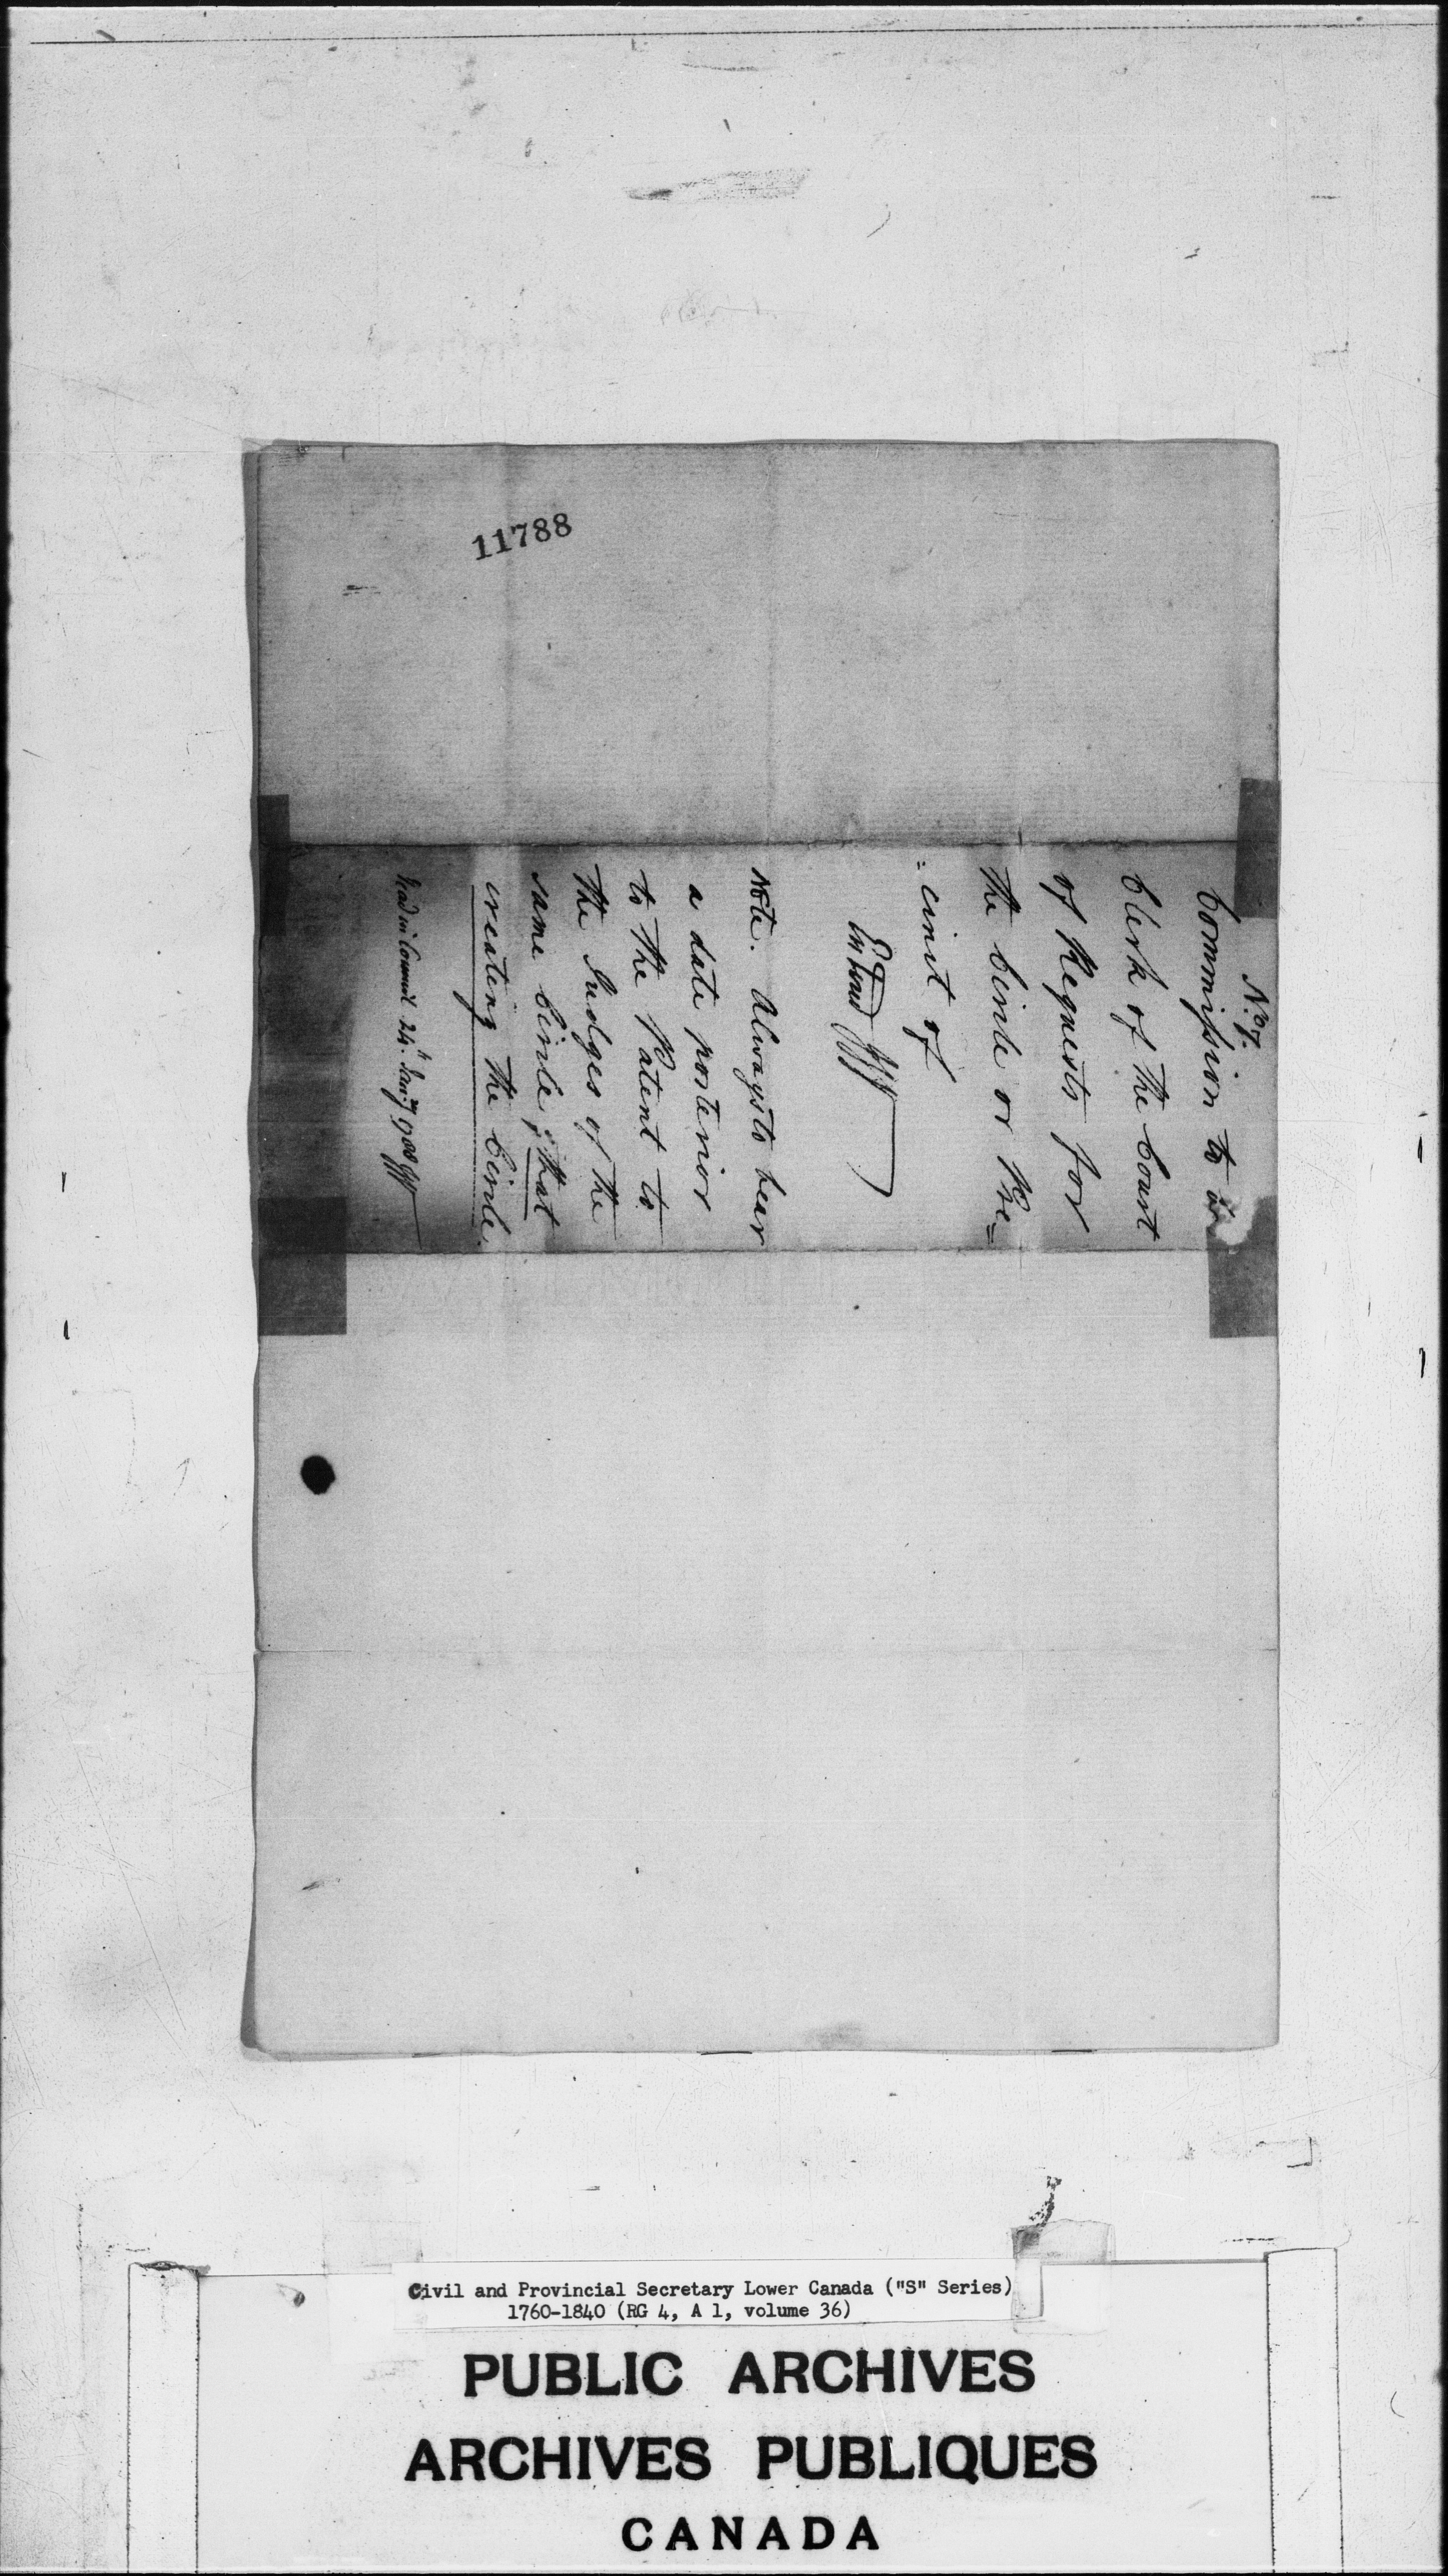 11788
No. 7.
Commission to a
Clerk of the Court
of Requests for
the Circle or Pre=
=cinct of
Note. Always to bear
a date posterior
to the Patent to
the Judges of the
same Circle; that
creating the Circle.
Read in Council 24th Jan'y 1788
Civil and Provincial Secretary Lower Canada ("S" Series)
1760-1840 (RG 4, A 1, volume 36)
PUBLIC ARCHIVES
ARCHIVES PUBLIQUES
CANADA